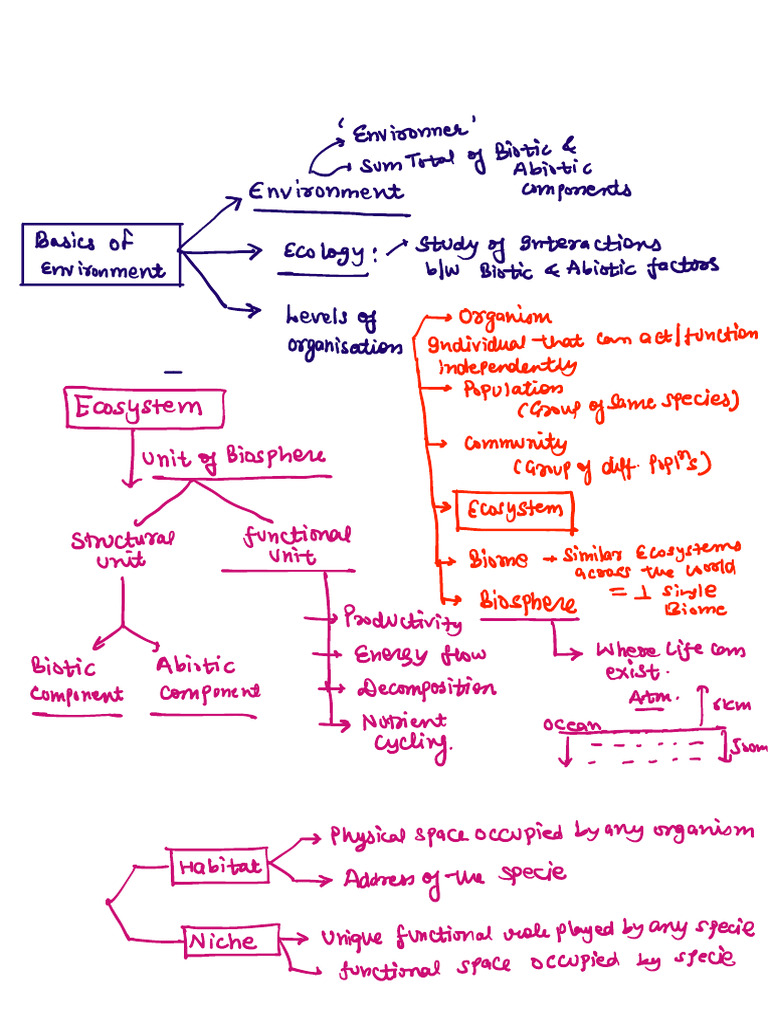 'Environner'
Sum Total of Biotic &
Abiotic
components
Environment
Basics of
Environment
Ecology :
Study of Interactions
b/w Biotic & Abiotic factors
Levels of
organisation
Organism
Individual that can act/function
independently
Population
(Group of same species)
Community
(Group of diff. Poplns)
Ecosystem
Biome → Similar Ecosystems
across the world
= 1 single
Biome
Biosphere
Where life can
exist.
Atm.
6km
Ocean
500m
Ecosystem
Unit of Biosphere
Structural
unit
functional
unit
Biotic
component
Abiotic
component
Productivity
Energy flow
Decomposition
Nutrient
Cycling.
Habitat
Physical space occupied by any organism
Address of the specie
Niche
Unique functional role played by any specie
functional space occupied by specie